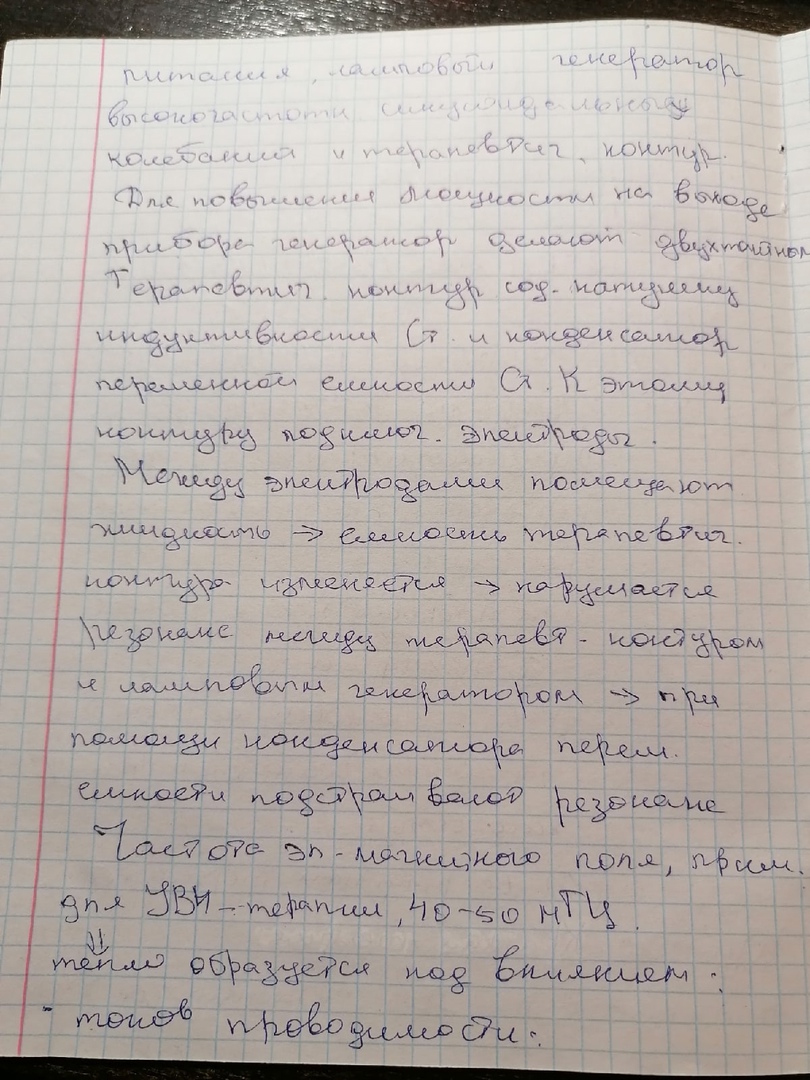 питания, ламповый генератор
высокочастотн синусоидальных
колебаний и терапевтич. контур.
Для повышения мощности на выходе
прибора генератор делают двухтактном
Терапевтич. контур сод. катушку
индуктивности Lт. и конденсатор
переменной емкости Cт. К этому
контуру подключ. электроды.
Между электродами помещают
жидкость → емкость терапевтич.
контура изменяется → нарушается
резонанс между терапевт - контуром
и ламповым генератором → при
помощи конденсатора перем.
емкости подстраивают резонанс
Частота эл-магнитного поля, прим.
для УВЧ-терапии, 40-50 мГЦ.
⇓
тепло образуется под влиянием:
- токов проводимости: